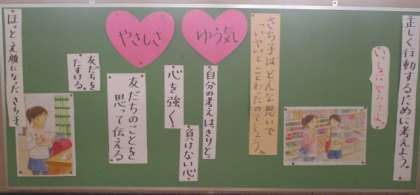 正しく行動するために考えよう。
さち子はどんな思いで
いさぎよくことわったのでしょう。
ゆう気
自分の考えははっきりと
負けない心
心を強く
やさしさ
友だちのことを
思って伝える
友だちを
たすける。
ほっとえ顔になったさち子。